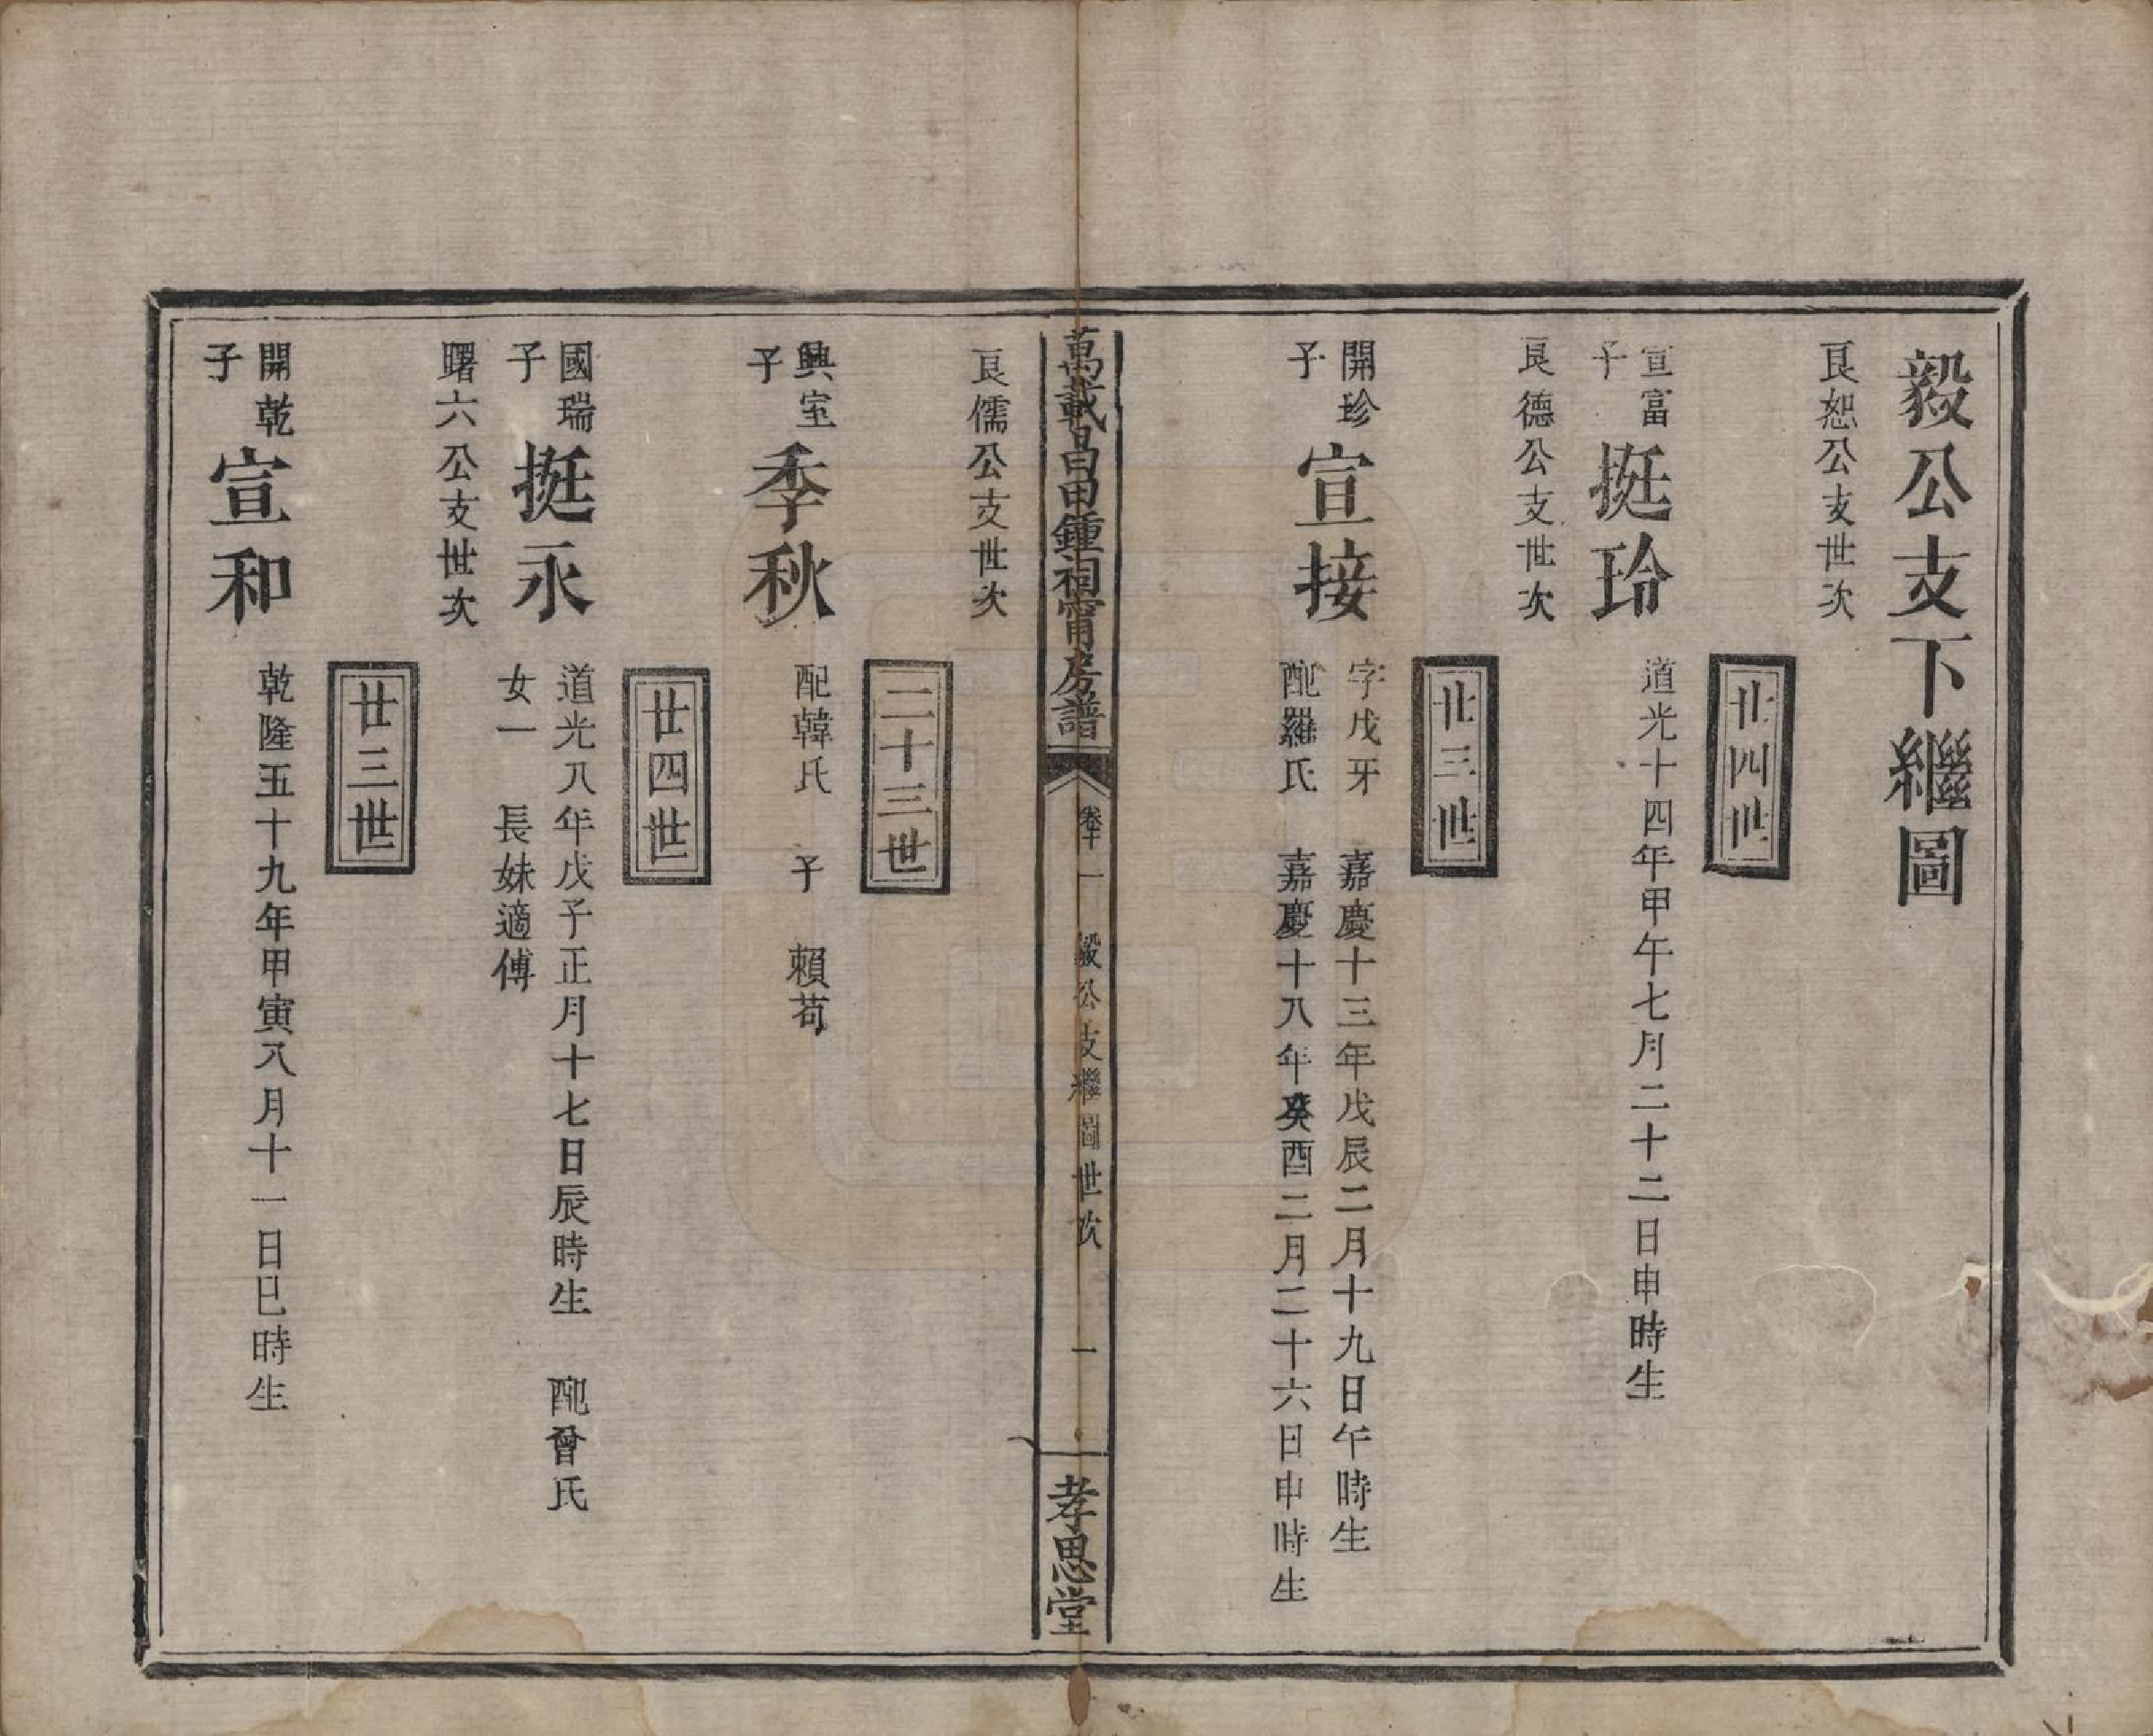 毅公支下繼圖
良恕公支世次
廿四世
宣富
子
挺玲
道光十四年甲午七月二十二日申時生
良德公支世次
廿三世
開珍
子
宣接
字戊牙 嘉慶十三年戊辰二月十九日午時生
配羅氏 嘉慶十八年癸酉二月二十六日申時生
萬載昌田鍾祠甯房譜
卷十一 毅公支繼圖世次 一
孝思堂
良儒公支世次
二十三世
興室
子
季秋
配韓氏 子 賴苟
廿四世
國瑞
子
挺永
道光八年戊子正月十七日辰時生 配曾氏
女一 長妹適傅
曙六公支世次
廿三世
開乾
子
宣和
乾隆五十九年甲寅八月十一日巳時生